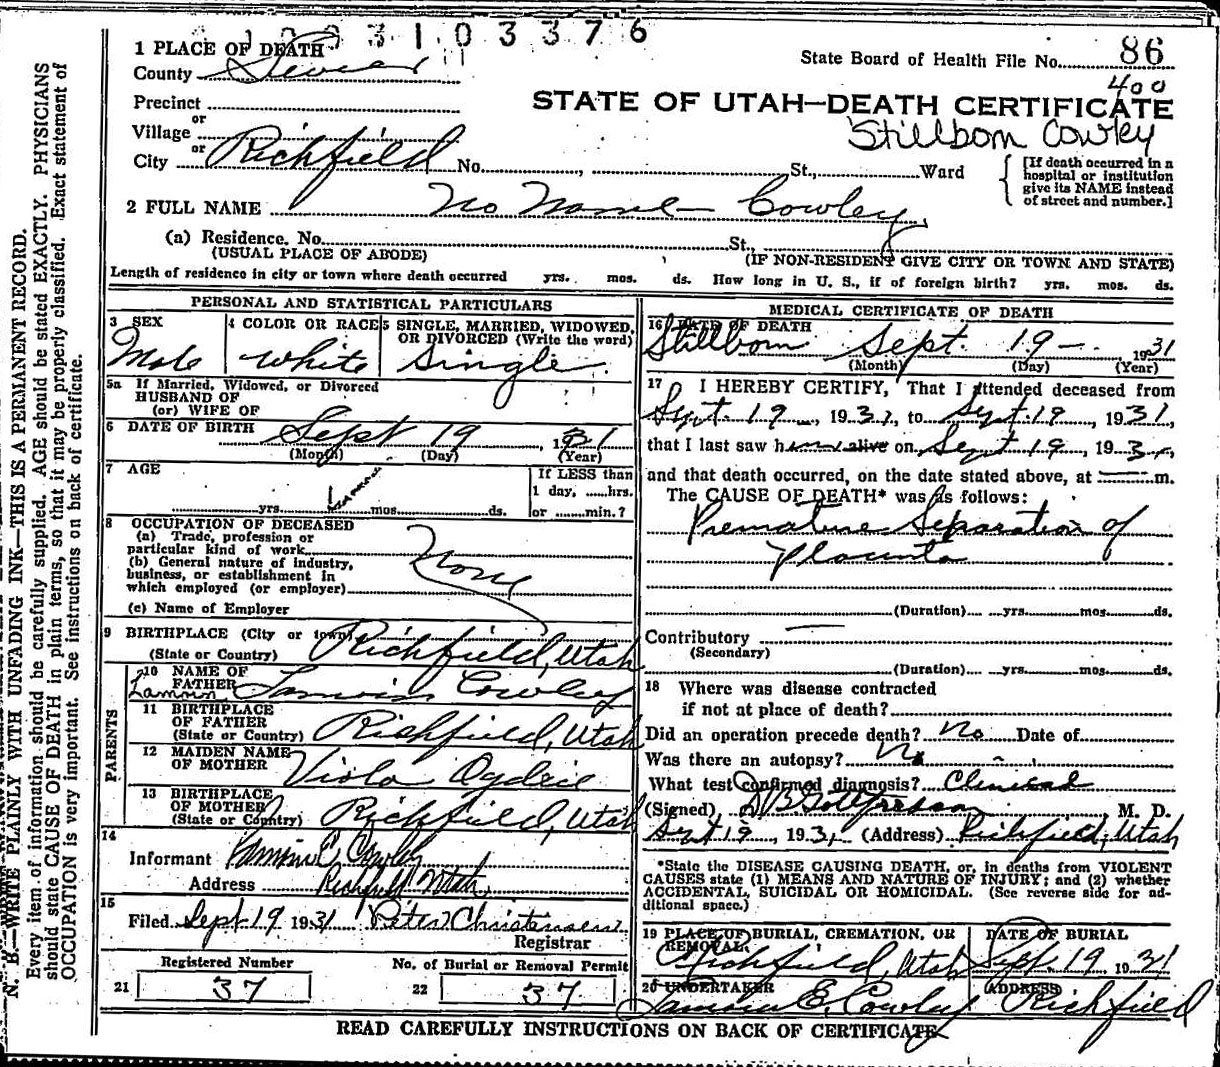 3 1 0 3 3 7 6
1 PLACE OF DEATH
State Board of Health File No. 86
County Sevier
400
Precinct
STATE OF UTAH—DEATH CERTIFICATE
or
Village
Stillborn Cowley
or
City Richfield No. , St., Ward
[If death occurred in a hospital or institution give its NAME instead of street and number.]
2 FULL NAME No Name Cowley
(a) Residence. No. St.,
(USUAL PLACE OF ABODE) (IF NON-RESIDENT GIVE CITY OR TOWN AND STATE)
Length of residence in city or town where death occurred yrs. mos. ds. How long in U. S., if of foreign birth? yrs. mos. ds.
PERSONAL AND STATISTICAL PARTICULARS
3 SEX 4 COLOR OR RACE 5 SINGLE, MARRIED, WIDOWED,
OR DIVORCED (Write the word)
Male White Single
5a If Married, Widowed, or Divorced
HUSBAND OF
(or) WIFE OF
6 DATE OF BIRTH Sept 19 , 1931
(Month) (Day) (Year)
7 AGE
If LESS than
1 day, ......hrs.
yrs. mos. ds. or ........min.?
8 OCCUPATION OF DECEASED
(a) Trade, profession or
particular kind of work
(b) General nature of industry,
business, or establishment in
which employed (or employer)
None
(c) Name of Employer
9 BIRTHPLACE (City or town)
(State or Country) Richfield, Utah
PARENTS
10 NAME OF
FATHER Lamoin Cowley
11 BIRTHPLACE
OF FATHER
(State or Country) Richfield, Utah
12 MAIDEN NAME
OF MOTHER Viola Ogden
13 BIRTHPLACE
OF MOTHER
(State or Country) Richfield, Utah
14
Informant Lamoin E. Cowley
Address Richfield Utah
15
Filed Sept 19 1931 Peter Christensen
Registrar
Registered Number No. of Burial or Removal Permit
21 37 22 37
MEDICAL CERTIFICATE OF DEATH
16 DATE OF DEATH
Stillborn Sept. 19 1931
(Month) (Day) (Year)
17 I HEREBY CERTIFY, That I attended deceased from
Sept. 19 , 1931, to Sept. 19 , 1931,
that I last saw h alive on Sept 19 , 193
and that death occurred, on the date stated above, at m.
The CAUSE OF DEATH* was as follows:
Premature Separation of
Placenta
(Duration) yrs. mos. ds.
Contributory
(Secondary)
(Duration) yrs. mos. ds.
18 Where was disease contracted
if not at place of death?
Did an operation precede death? No Date of
Was there an autopsy? No
What test confirmed diagnosis? Clinical
(Signed) D B Gottfredson M. D.
Sept 19 , 1931 (Address) Richfield, Utah
*State the DISEASE CAUSING DEATH, or, in deaths from VIOLENT
CAUSES state (1) MEANS AND NATURE OF INJURY; and (2) whether
ACCIDENTAL, SUICIDAL OR HOMICIDAL. (See reverse side for ad-
ditional space.)
19 PLACE OF BURIAL, CREMATION, OR
REMOVAL DATE OF BURIAL
Richfield, Utah Sept. 19 1931
20 UNDERTAKER ADDRESS
Lamoin E. Cowley Richfield
READ CAREFULLY INSTRUCTIONS ON BACK OF CERTIFICATE
N. B.—WRITE PLAINLY WITH UNFADING INK—THIS IS A PERMANENT RECORD.
Every item of information should be carefully supplied. AGE should be stated EXACTLY. PHYSICIANS
should state CAUSE OF DEATH in plain terms, so that it may be properly classified. Exact statement of
OCCUPATION is very important. See instructions on back of certificate.